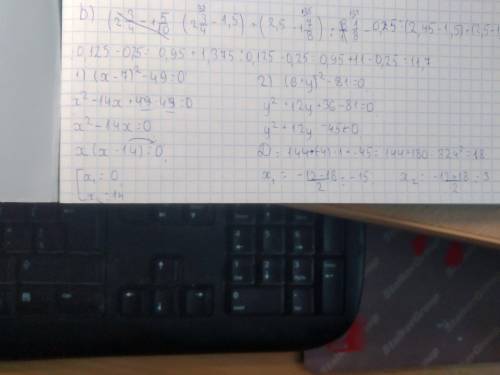 b) (2 3/4 - 1,5) + (2,5 - 1 7/8) : 1/8 - 0,25 = (2,45 - 1,5) + (2,5 - 1
0,125 - 0,25 = 0,95 + 1,375 : 0,125 - 0,25 = 0,95 + 11 - 0,25 = 11,7
1) (x-7)² - 49 = 0
x² - 14x + 49 - 49 = 0
x² - 14x = 0
x(x - 14) = 0
[x₁ = 0
x₂ = 14
2) (6+y)² - 81 = 0
y² + 12y + 36 - 81 = 0
y² + 12y - 45 = 0
D = 144 + (-4) · 1 · -45 = 144 + 180 = 324² = 18
x₁ = -12-18/2 = -15 x₂ = -12+18/2 = 3